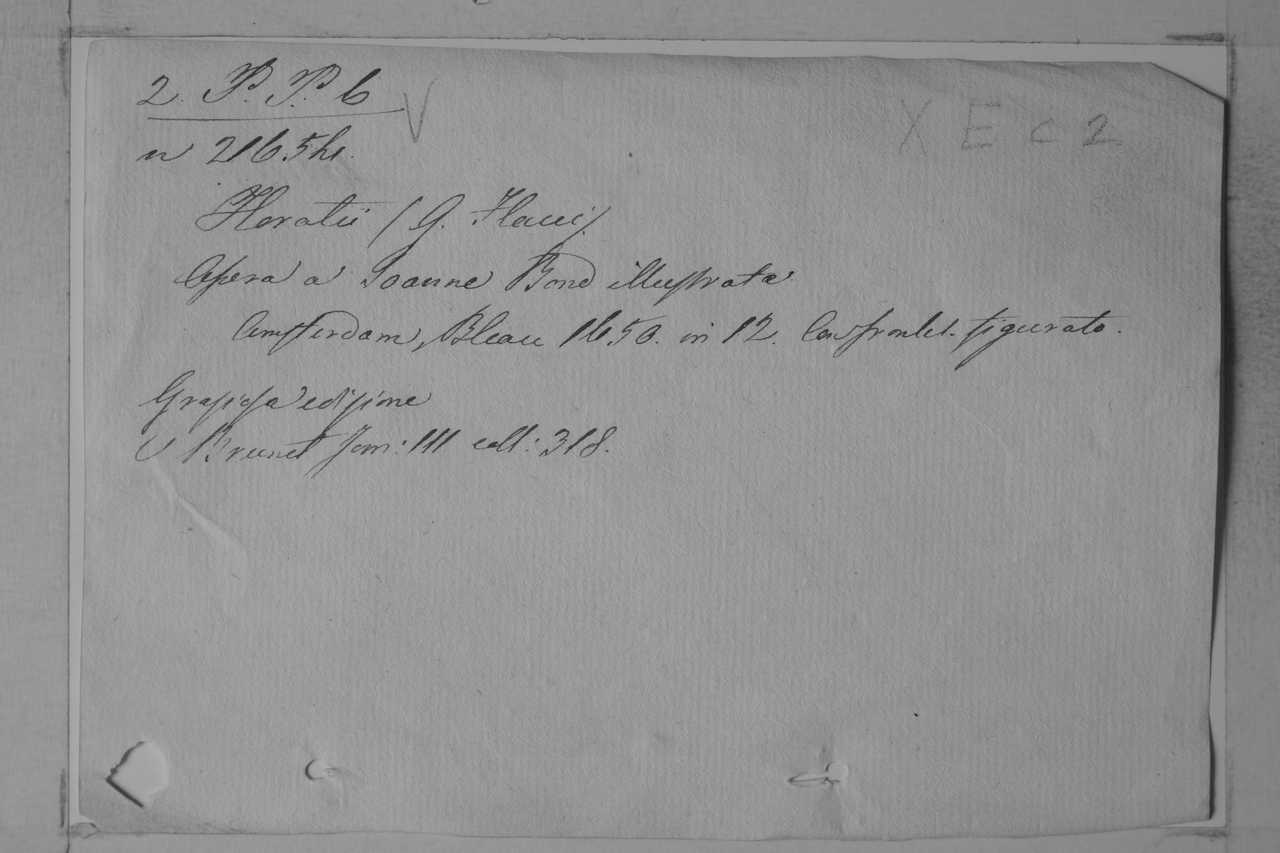 2. P. P. 6 V
X E C 2
n 2165 h.
Horatii (Q. Flacci)
Opera a Joanne Bond illustrata
Amsterdam, Bleau 1650. in 12. Con frontes. figurato.
Graziosa edizione
V Brunet Tom: III coll: 318.